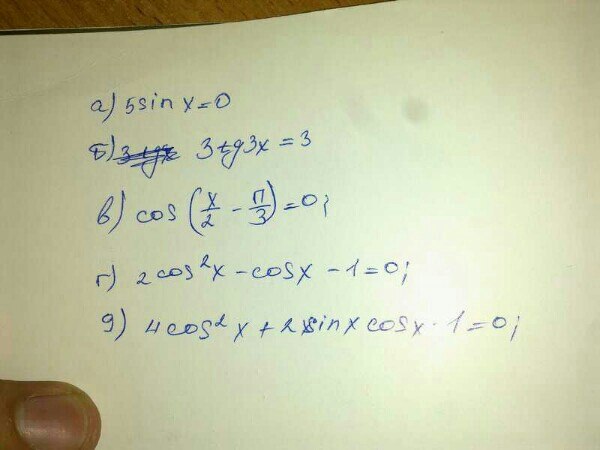 а) 5sin x=0
б) 3tg3x = 3
в) cos (x/2 - π/3)=0;
г) 2cos²x-cosx-1=0;
д) 4cos²x+2sinxcosx-1=0;